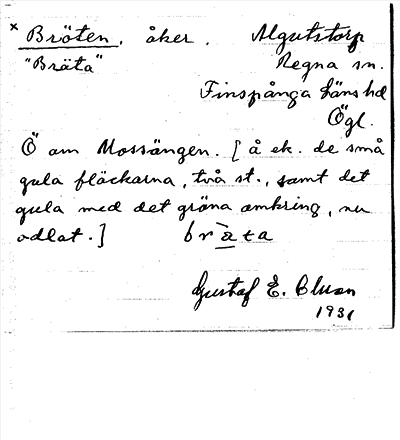 × Bröten, åker. Algutstorp
"Bräta" Regna sn.
Finspånga läns hd
Ögl.
Ö om Mossängen. [å ek. de små
gula fläckarna, två st., samt det
gula med det gröna omkring, nu
odlat.] bràta
Gustaf E. Bluon
1931